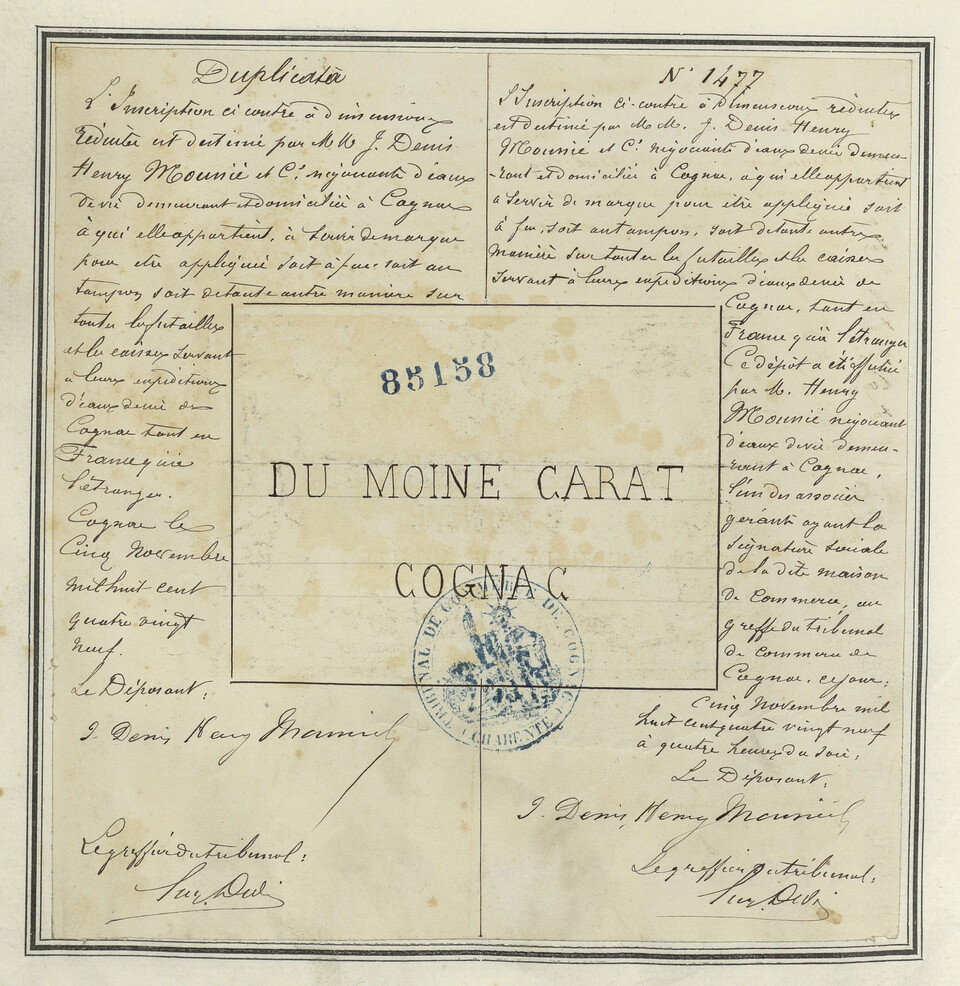 Duplicata
L'Inscription ci contre à dimensions
réduites est destinée par MM J. Denis
Henry Mounié et Cie négociants d'eaux
de vie demeurant et domiciliés à Cognac
à qui elle appartient, à servir de marque
pour etre appliquée soit à feu, soit au
tampon soit de toute autre manière sur
toutes les futailles
et les caisses servant
à leurs expéditions
d'eaux de vie de
Cognac tant en
France qu'à
l'étranger.
Cognac le
Cinq Novembre
mil huit cent
quatre vingt
neuf.
Le Déposant:
J. Denis Henry Mounié &
Le greffier du tribunal:
N° 1477
L'Inscription ci-contre à dimensions réduites
est destinée par MM. J. Denis Henry
Mounié et Cie négociants d'eaux de vie demeu-
-rant et domiciliés à Cognac, a qui elle appartient
a servir de marque pour etre appliquée soit
à feu, soit au tampon, soit de toute autre
manière sur toutes les futailles et les caisses
servant à leurs expéditions d'eaux de vie de
Cognac, tant en
France qu'à l'étranger
Ce dépôt a été effectué
par M. Henry
Mounié négociant
d'eaux de vie demeu-
-rant à Cognac,
l'un des associés
gérants ayant la
signature sociale
de la dite maison
de commerce, au
greffe du tribunal
de commerce de
Cognac, ce jour:
cinq Novembre mil
huit cent quatre vingt neuf
à quatre heures du soir:
Le Déposant:
J. Denis, Henry Mounié &
Le greffier du tribunal:
85158
DU MOINE CARAT
COGNAC
TRIBUNAL DE COMMERCE DE COGNAC
(CHARENTE)